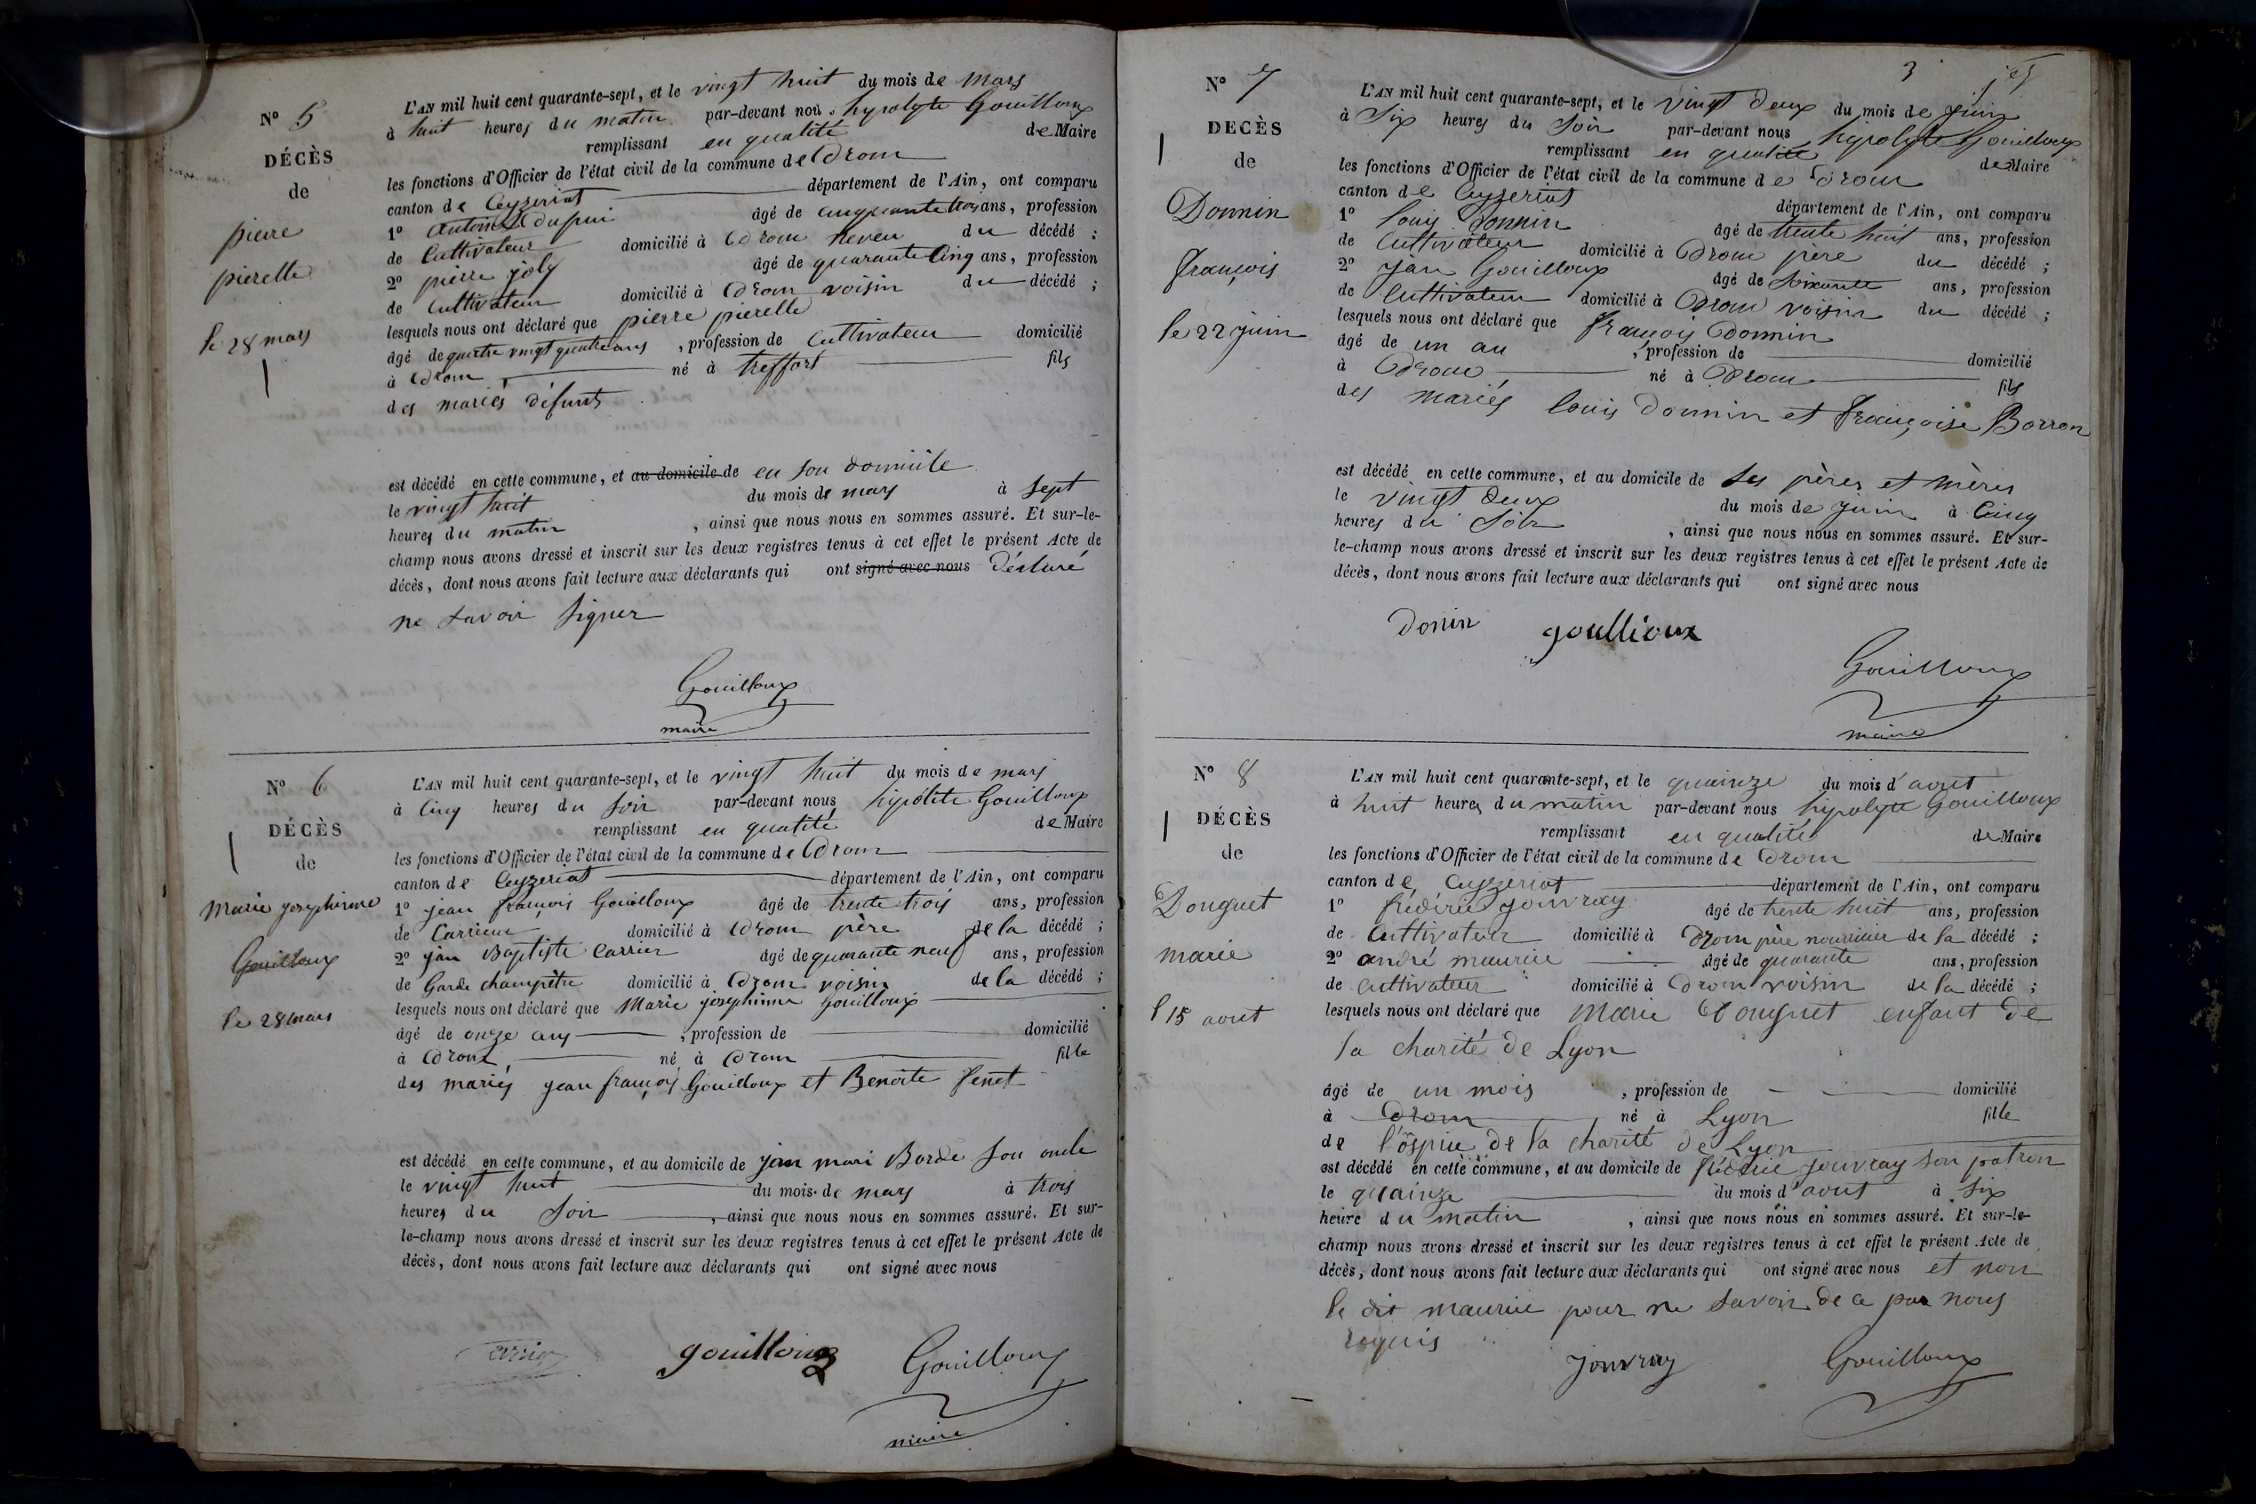 N° 5
DÉCÈS
de
pierre
pierette
le 28 mars
L'AN mil huit cent quarante-sept, et le vingt huit du mois de mars
à huit heures du matin par-devant nous hypolyte Gouilloux
remplissant en qualité de Maire
les fonctions d'Officier de l'état civil de la commune de Drom
canton de Ceyzeriat département de l'Ain, ont comparu
1° antoine dupui âgé de cinquante trois ans, profession
de Cultivateur domicilié à Drom neveu du décédé ;
2° pierre joly âgé de quarante Cinq ans, profession
de Cultivateur domicilié à Drom voisin du décédé ;
lesquels nous ont déclaré que pierre pierette
âgé de quatre vingt quatre ans, profession de Cultivateur domicilié
à Drom né à treffort fils
des mariés défunts
est décédé en cette commune, et au domicile de en son domicile
le vingt huit du mois de mars à sept
heures du matin, ainsi que nous nous en sommes assuré. Et sur-le-
champ nous avons dressé et inscrit sur les deux registres tenus à cet effet le présent Acte de
décès, dont nous avons fait lecture aux déclarants qui ont signé avec nous déclaré
ne savoir signer
Gouilloux
maire
N° 6
DÉCÈS
de
Marie josephinne
Gouilloux
le 28 mars
L'AN mil huit cent quarante-sept, et le vingt huit du mois de mars
à Cinq heures du soir par-devant nous hipolite Gouilloux
remplissant en qualité de Maire
les fonctions d'Officier de l'état civil de la commune de Drom
canton de Ceyzeriat département de l'Ain, ont comparu
1° jean françois Gouilloux âgé de trente trois ans, profession
de Carrieur domicilié à Drom père de la décédé ;
2° jean Baptiste Carrier âgé de quarante neuf ans, profession
de Garde champêtre domicilié à Drom voisin de la décédé ;
lesquels nous ont déclaré que Marie josephinne Gouilloux
âgé de onze ans, profession de domicilié
à Drom né à Drom fille
des mariés jean françois Gouilloux et Benoite fenet
est décédé en cette commune, et au domicile de jean mari Borde son oncle
le vingt huit du mois de mars à trois
heures du soir, ainsi que nous nous en sommes assuré. Et sur-
le-champ nous avons dressé et inscrit sur les deux registres tenus à cet effet le présent Acte de
décès, dont nous avons fait lecture aux déclarants qui ont signé avec nous
Carrier gouilloux Gouilloux
maire
3
N° 7
DECÈS
de
Donnin
françois
le 22 juin
L'AN mil huit cent quarante-sept, et le vingt deux du mois de juin
à Six heures du soir par-devant nous hipolyte Gouilloux
remplissant en qualité de Maire
les fonctions d'Officier de l'état civil de la commune de Drom
canton de Ceyzeriat département de l'Ain, ont comparu
1° louis Donnin âgé de trente huit ans, profession
de Cultivateur domicilié à Drom père du décédé ;
2° jean Gouilloux âgé de soixante ans, profession
de Cultivateur domicilié à Drom voisin du décédé ;
lesquels nous ont déclaré que françois Donnin
âgé de un an, profession de domicilié
à Drom né à Drom fils
des mariés louis Donnin et françoise Borron
est décédé en cette commune, et au domicile de ses pères et mères
le vingt deux du mois de juin à Cinq
heures du soir, ainsi que nous nous en sommes assuré. Et sur-
le-champ nous avons dressé et inscrit sur les deux registres tenus à cet effet le présent Acte de
décès, dont nous avons fait lecture aux déclarants qui ont signé avec nous
Donin goullioux
Gouilloux
maire
N° 8
DÉCÈS
de
Donguet
marie
l 15 aout
L'AN mil huit cent quarante-sept, et le quainze du mois d'aout
à huit heures du matin par-devant nous hipolyte Gouilloux
remplissant en qualité de Maire
les fonctions d'Officier de l'état civil de la commune de Drom
canton de Ceyzeriat département de l'Ain, ont comparu
1° frédéric jouvray âgé de trente huit ans, profession
de Cultivateur domicilié à Drom père nourricier de la décédé ;
2° andré mauricie âgé de quarante ans, profession
de Cultivateur domicilié à Drom voisin de la décédé ;
lesquels nous ont déclaré que Marie Donguet enfant de
la charité de Lyon
âgé de un mois, profession de domicilié
à Drom né à Lyon fille
de l'ôspice de la charité de Lyon
est décédé en cette commune, et au domicile de frédéric jouvray son patron
le quainze du mois d'aout à six
heure du matin, ainsi que nous nous en sommes assuré. Et sur-le-
champ nous avons dressé et inscrit sur les deux registres tenus à cet effet le présent Acte de
décès, dont nous avons fait lecture aux déclarants qui ont signé avec nous et non
le dit mauricie pour ne savoir de ce par nous
requis
jouvray Gouilloux